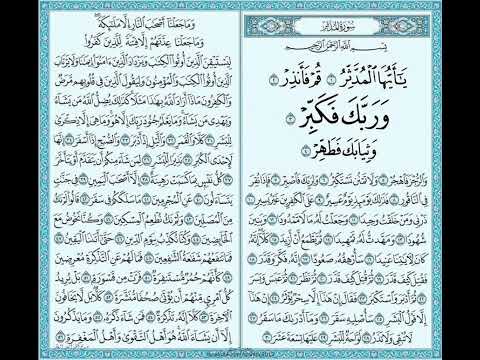 سُورَةُ المُدَّثِّرِ
بِسْمِ اللَّهِ الرَّحْمَٰنِ الرَّحِيمِ
يَٰٓأَيُّهَا الْمُدَّثِّرُ ١ قُمْ فَأَنذِرْ ٢
وَرَبَّكَ فَكَبِّرْ ٣
وَثِيَابَكَ فَطَهِّرْ ٤
وَالرُّجْزَ فَاهْجُرْ ٥ وَلَا تَمْنُن تَسْتَكْثِرُ ٦ وَلِرَبِّكَ فَاصْبِرْ ٧ فَإِذَا نُقِرَ
فِي النَّاقُورِ ٨ فَذَٰلِكَ يَوْمَئِذٍ يَوْمٌ عَسِيرٌ ٩ عَلَى الْكَٰفِرِينَ غَيْرُ يَسِيرٍ ١٠
ذَرْنِي وَمَنْ خَلَقْتُ وَحِيدًا ١١ وَجَعَلْتُ لَهُ مَالًا مَّمْدُودًا ١٢ وَبَنِينَ
شُهُودًا ١٣ وَمَهَّدتُّ لَهُ تَمْهِيدًا ١٤ ثُمَّ يَطْمَعُ أَنْ أَزِيدَ ١٥ كَلَّا إِنَّهُ
كَانَ لِءَايَٰتِنَا عَنِيدًا ١٦ سَأُرْهِقُهُ صَعُودًا ١٧ إِنَّهُ فَكَّرَ وَقَدَّرَ ١٨
فَقُتِلَ كَيْفَ قَدَّرَ ١٩ ثُمَّ قُتِلَ كَيْفَ قَدَّرَ ٢٠ ثُمَّ نَظَرَ ٢١ ثُمَّ عَبَسَ وَبَسَرَ ٢٢
ثُمَّ أَدْبَرَ وَاسْتَكْبَرَ ٢٣ فَقَالَ إِنْ هَٰذَا إِلَّا سِحْرٌ يُؤْثَرُ ٢٤ إِنْ هَٰذَا
إِلَّا قَوْلُ الْبَشَرِ ٢٥ سَأُصْلِيهِ سَقَرَ ٢٦ وَمَا أَدْرَىٰكَ مَا سَقَرُ ٢٧
لَا تُبْقِي وَلَا تَذَرُ ٢٨ لَوَّاحَةٌ لِّلْبَشَرِ ٢٩ عَلَيْهَا تِسْعَةَ عَشَرَ ٣٠
وَمَا جَعَلْنَا أَصْحَٰبَ النَّارِ إِلَّا مَلَٰٓئِكَةً
وَمَا جَعَلْنَا عِدَّتَهُمْ إِلَّا فِتْنَةً لِّلَّذِينَ كَفَرُوا
لِيَسْتَيْقِنَ الَّذِينَ أُوتُوا الْكِتَٰبَ وَيَزْدَادَ الَّذِينَ ءَامَنُوا إِيمَٰنًا وَلَا يَرْتَابَ
الَّذِينَ أُوتُوا الْكِتَٰبَ وَالْمُؤْمِنُونَ وَلِيَقُولَ الَّذِينَ فِي قُلُوبِهِم مَّرَضٌ
وَالْكَٰفِرُونَ مَاذَا أَرَادَ اللَّهُ بِهَٰذَا مَثَلًا كَذَٰلِكَ يُضِلُّ اللَّهُ مَن يَشَاءُ
وَيَهْدِي مَن يَشَاءُ وَمَا يَعْلَمُ جُنُودَ رَبِّكَ إِلَّا هُوَ وَمَا هِيَ إِلَّا ذِكْرَىٰ
لِلْبَشَرِ ٣١ كَلَّا وَالْقَمَرِ ٣٢ وَالَّيْلِ إِذْ أَدْبَرَ ٣٣ وَالصُّبْحِ إِذَا أَسْفَرَ ٣٤ إِنَّهَا
لَإِحْدَى الْكُبَرِ ٣٥ نَذِيرًا لِّلْبَشَرِ ٣٦ لِمَن شَاءَ مِنكُمْ أَن يَتَقَدَّمَ أَوْ يَتَأَخَّرَ ٣٧
كُلُّ نَفْسٍ بِمَا كَسَبَتْ رَهِينَةٌ ٣٨ إِلَّا أَصْحَٰبَ الْيَمِينِ ٣٩ فِي جَنَّٰتٍ
يَتَسَاءَلُونَ ٤٠ عَنِ الْمُجْرِمِينَ ٤١ مَا سَلَكَكُمْ فِي سَقَرَ ٤٢ قَالُوا لَمْ نَكُ
مِنَ الْمُصَلِّينَ ٤٣ وَلَمْ نَكُ نُطْعِمُ الْمِسْكِينَ ٤٤ وَكُنَّا نَخُوضُ مَعَ
الْخَائِضِينَ ٤٥ وَكُنَّا نُكَذِّبُ بِيَوْمِ الدِّينِ ٤٦ حَتَّىٰ أَتَىٰنَا الْيَقِينُ ٤٧
فَمَا تَنفَعُهُمْ شَفَٰعَةُ الشَّٰفِعِينَ ٤٨ فَمَا لَهُمْ عَنِ التَّذْكِرَةِ مُعْرِضِينَ ٤٩
كَأَنَّهُمْ حُمُرٌ مُّسْتَنفِرَةٌ ٥٠ فَرَّتْ مِن قَسْوَرَةٍ ٥١ بَلْ يُرِيدُ
كُلُّ امْرِئٍ مِّنْهُمْ أَن يُؤْتَىٰ صُحُفًا مُّنَشَّرَةً ٥٢ كَلَّا بَل لَّا يَخَافُونَ
الْءَاخِرَةَ ٥٣ كَلَّا إِنَّهُ تَذْكِرَةٌ ٥٤ فَمَن شَاءَ ذَكَرَهُ ٥٥ وَمَا يَذْكُرُونَ
إِلَّا أَن يَشَاءَ اللَّهُ هُوَ أَهْلُ التَّقْوَىٰ وَأَهْلُ الْمَغْفِرَةِ ٥٦